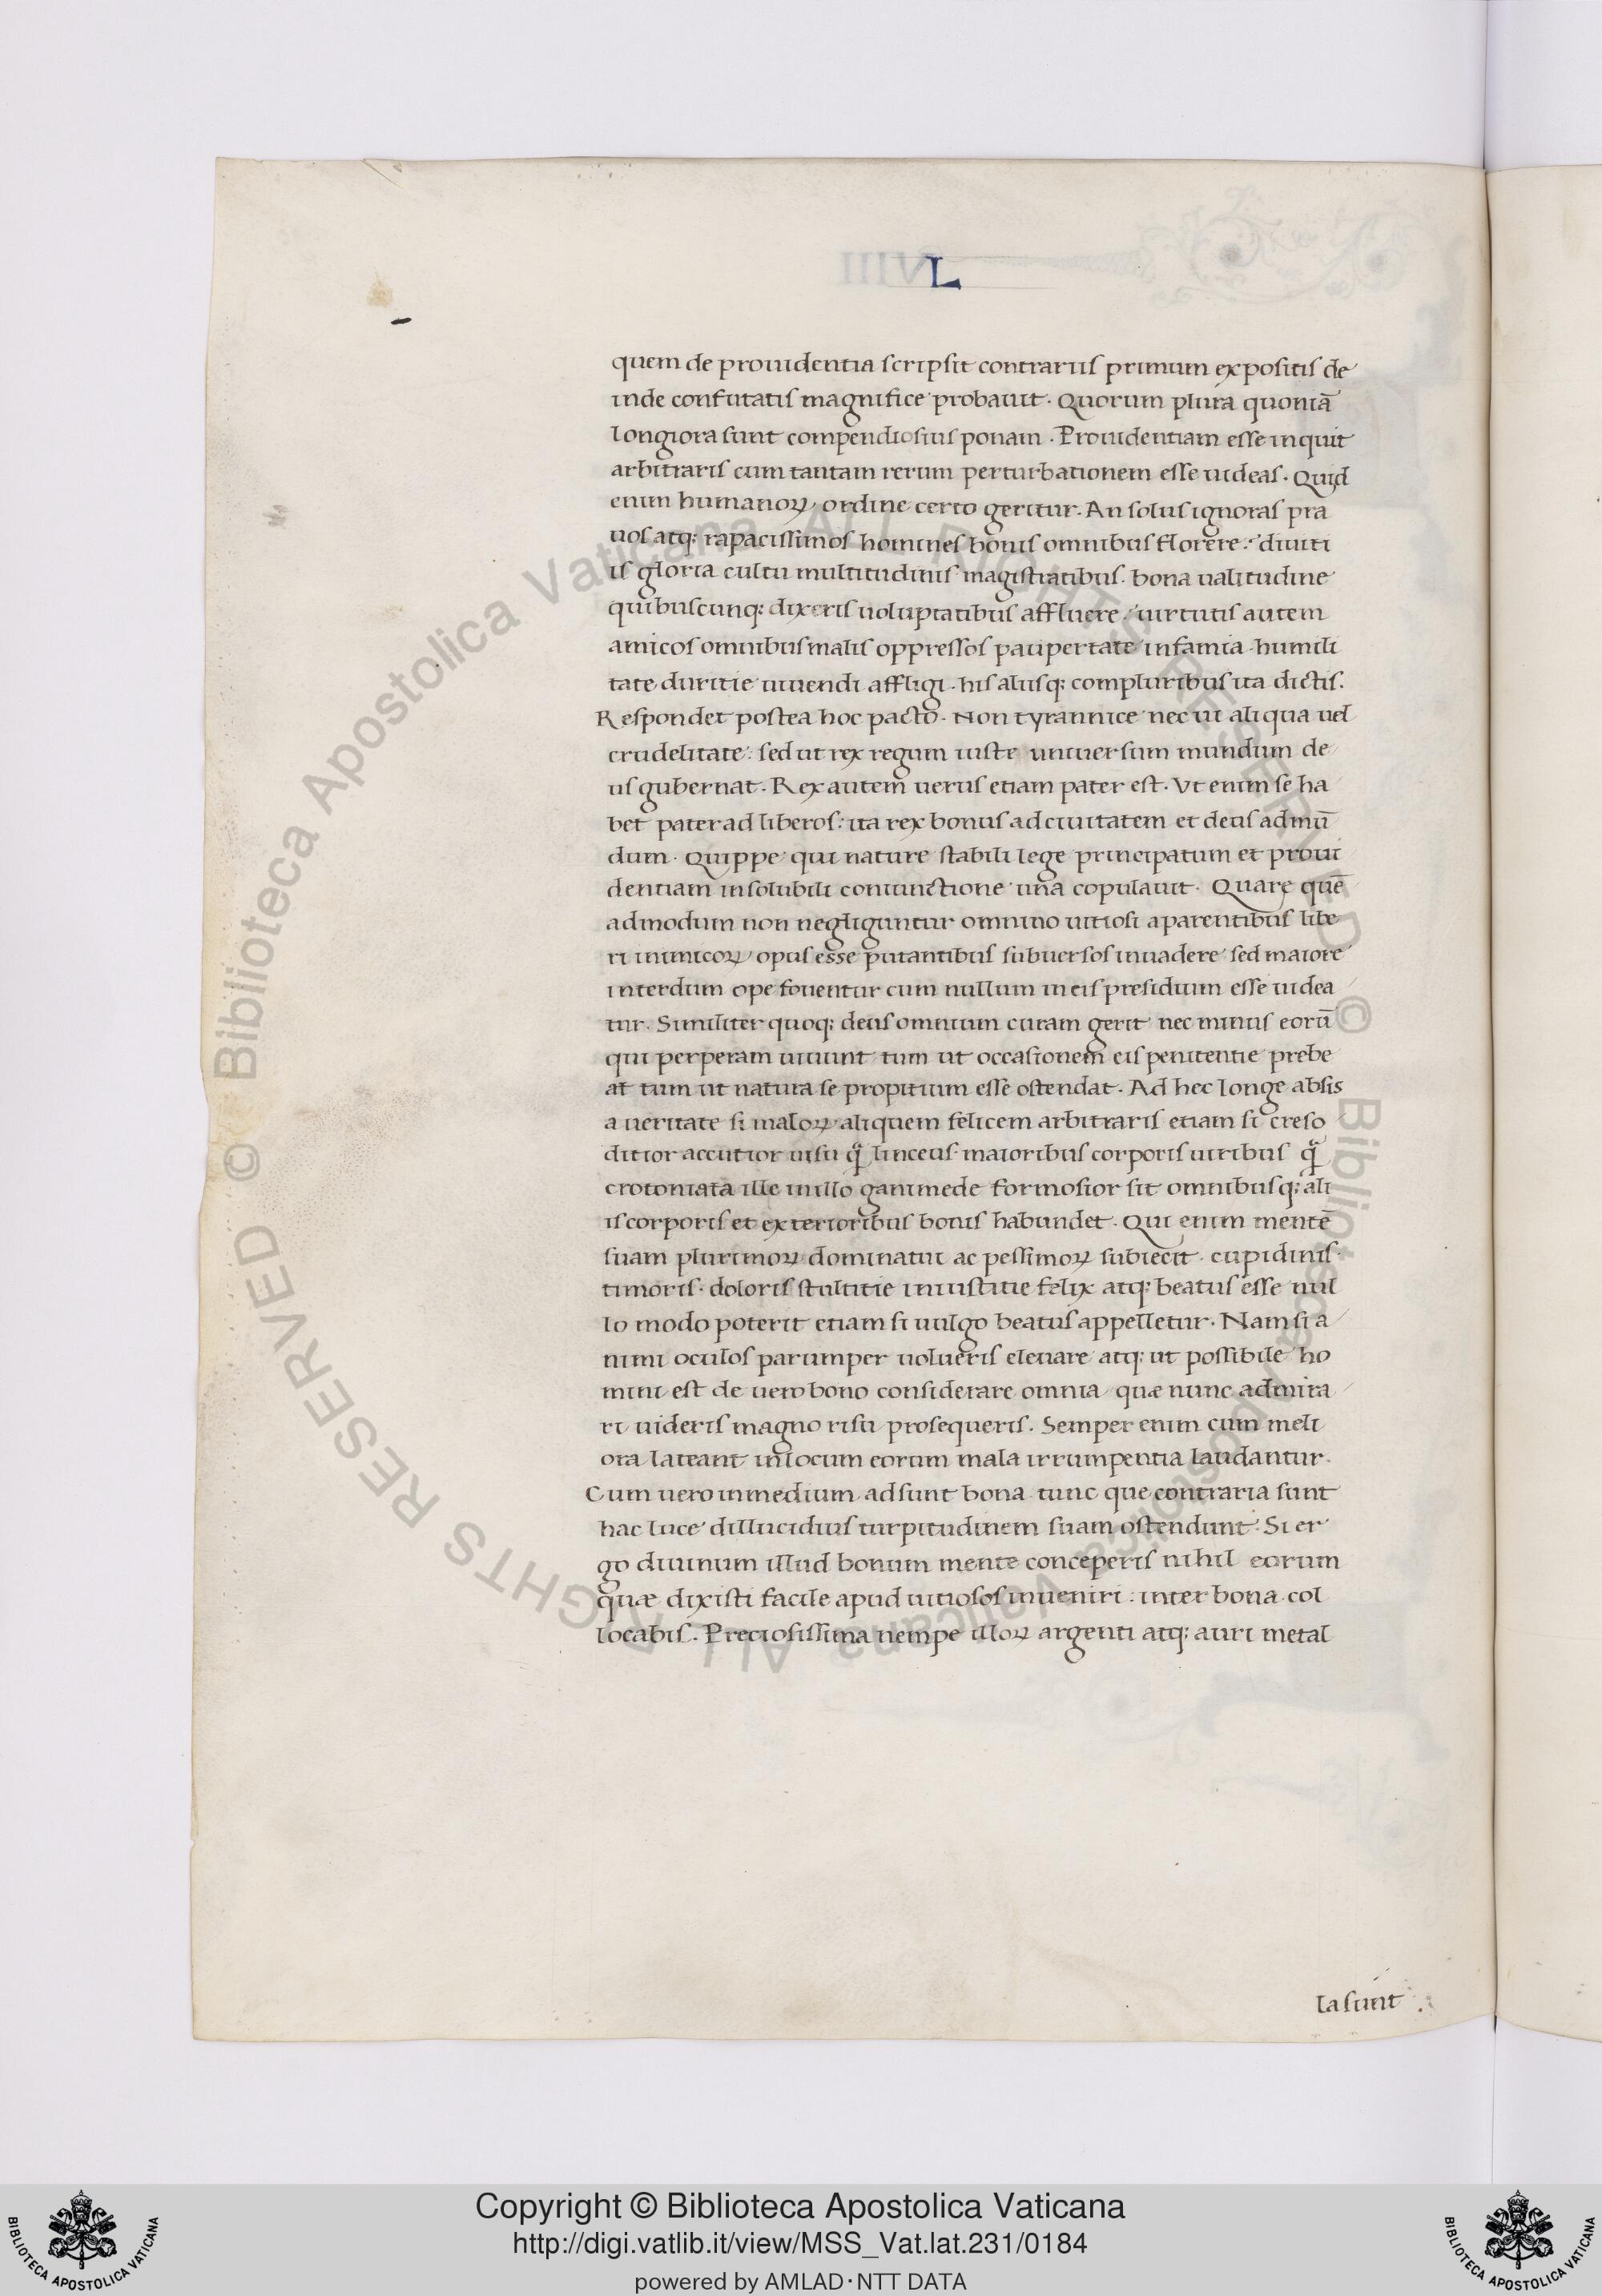 L
quem de prouidentia scripsit contrariis primum expositis de
inde confutatis magnifice probauit. Quorum plura quoniã
longiora sunt compendiosius ponam. Prouidentiam esse inquit
arbitraris cum tantam rerum perturbationem esse uideas. Quid
enim humanoꝝ ordine certo geritur. An solus ignoras pra
uos atq; rapacissimos homines bonis omnibus florere: diuiti
is gloria cultu multitudinis magistratibus. bona ualitudine
quibuscunq; dixeris uoluptatibus affluere: uirtutis autem
amicos omnibus malis oppressos paupertate infamia humili
tate duritie uiuendi affligi. his aliisq; compluribus ita dictis.
Respondet postea hoc pacto. Non tyrannice nec ui aliqua uel
crudelitate: sed ut rex regum iuste uniuersum mundum de
us gubernat. Rex autem uerus etiam pater est. Vt enim se ha
bet pater ad liberos: ita rex bonus ad ciuitatem et deus ad mũ
dum. Quippe qui nature stabili lege principatum et proui
dentiam insolubili coniunctione una copulauit. Quare quẽ
admodum non negliguntur omnino uitiosi a parentibus libe
ri inimicoꝝ opus esse putantibus subuersos inuadere sed maiore
interdum ope fouentur cum nullum in eis presidium esse uidea
tur. Similiter quoq; deus omnium curam gerit nec minus eorũ
qui perperam uiuunt tum ut occasionem eis penitentie prebe
at tum ut natura se propitium esse ostendat. Ad hec longe absis
a ueritate si maloꝝ aliquem felicem arbitraris etiam si creso
ditior accutior uisu q̃ linceus maioribus corporis uiribus q̃
crotoniata ille millo ganimede formosior sit omnibusq; ali
is corporis et exterioribus bonis habundet. Qui enim mentẽ
suam plurimoꝝ dominatui ac pessimoꝝ subiecit. cupidinis.
timoris. doloris stultitie iniustitie felix atq; beatus esse nul
lo modo poterit etiam si uulgo beatus appelletur. Nam si a
nimi oculos parumper uolueris eleuare atq; ut possibile ho
mini est de uero bono considerare omnia quæ nunc admira
ri uideris magno risu prosequeris. Semper enim cum meli
ora lateant in locum eorum mala irrumpentia laudantur.
Cum uero in medium adsunt bona tunc que contraria sunt
hac luce dillucidius turpitudinem suam ostendunt. Si er
go diuinum illud bonum mente conceperis nihil eorum
quæ dixisti facile apud uitiosos inueniri: inter bona col
locabis. Preciosissima nempe illoꝝ argenti atq; auri metal
la sunt
© Biblioteca Apostolica Vaticana ALL RIGHTS RESERVED
© Biblioteca Apostolica Vaticana ALL RIGHTS RESERVED
BIBLIOTECA APOSTOLICA VATICANA
Copyright © Biblioteca Apostolica Vaticana
http://digi.vatlib.it/view/MSS_Vat.lat.231/0184
powered by AMLAD·NTT DATA
BIBLIOTECA APOSTOLICA VATICANA